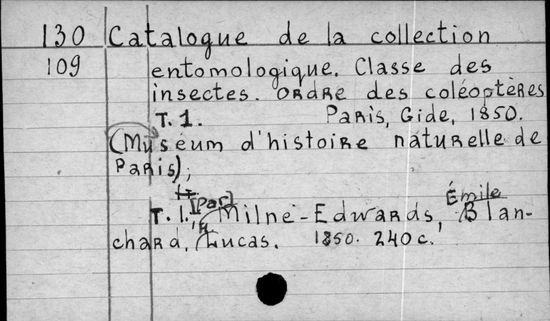 130 Catalogue de la collection
109 entomologique. Classe des
insectes. Ordre des coléoptères
T. 1. Paris, Gide, 1850.
(Muséum d'histoire naturelle de
Paris);
T. 1. [Par] H. Milne-Edwards, Émile Blan-
chard, H. Lucas. 1850. 240 c.